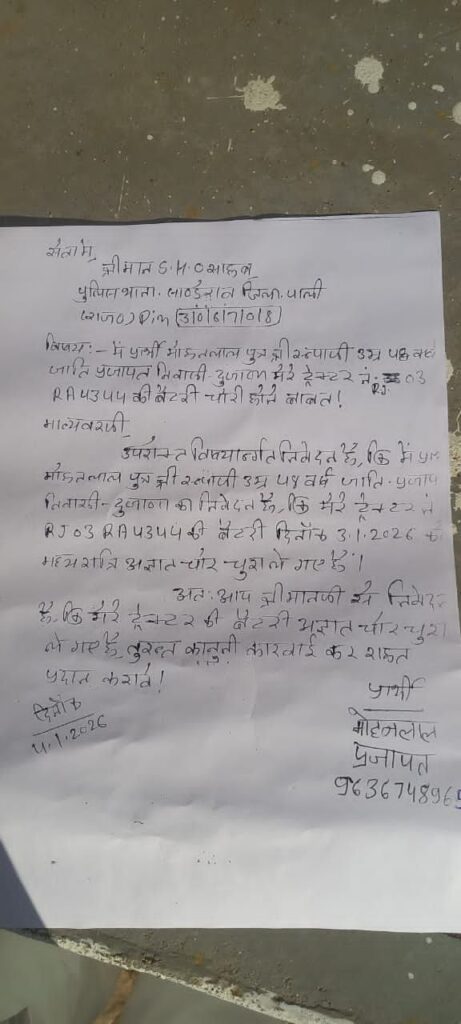 सेवामें,
श्रीमान S.H.O साहब
पुलिस थाना. साण्डेराव जिला. पाली
(राज०) Pin 306708
विषय:- में प्रार्थी मोहनलाल पुत्र श्री रूपाजी उम्र 48 वर्ष
जाति प्रजापत निवासी-दुजाणा मेरे ट्रेक्टर नं. RJ 03
RA4344 की बैटरी चोरी होने बाबत!
मान्यवरजी,
उपरोक्त विषयान्तर्गत निवेदन है, कि में
मोहनलाल पुत्र श्री रूपाजी उम्र 48 वर्ष जाति-प्रजाप
निवासी-दुजाणा का निवेदन है, कि मेरे ट्रेक्टर नं
RJ03 RA4344 की बैटरी दिनाँक 3.1.2026 को
मध्यरात्रि अज्ञात चोर चुरा ले गए हैं।
अतः आप श्रीमानजी से निवेदन
है, कि मेरे ट्रेक्टर की बैटरी अज्ञात चोर चुरा
ले गए है, तुरन्त कानुनी कारवाई कर राहत
प्रदान करावें!
प्रार्थी
मोहनलाल
प्रजापत
9636748965
दिनाँक
4.1.2026